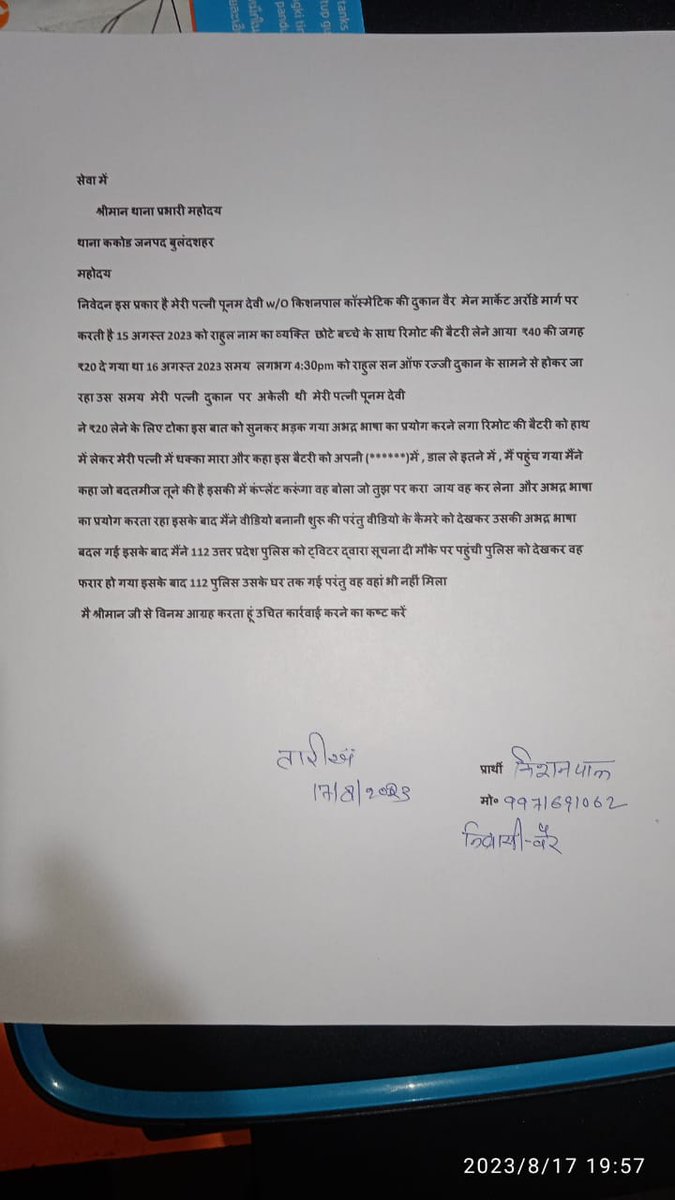 सेवा में
श्रीमान थाना प्रभारी महोदय
थाना ककोड जनपद बुलंदशहर
महोदय
निवेदन इस प्रकार है मेरी पत्नी पूनम देवी w/O किशनपाल कॉस्मेटिक की दुकान वैर मेन मार्केट अरोंडे मार्ग पर
करती है 15 अगस्त 2023 को राहुल नाम का व्यक्ति छोटे बच्चे के साथ रिमोट की बैटरी लेने आया ₹40 की जगह
₹20 दे गया था 16 अगस्त 2023 समय लगभग 4:30pm को राहुल सन ऑफ रज्जी दुकान के सामने से होकर जा
रहा उस समय मेरी पत्नी दुकान पर अकेली थी मेरी पत्नी पूनम देवी
ने ₹20 लेने के लिए टोका इस बात को सुनकर भड़क गया अभद्र भाषा का प्रयोग करने लगा रिमोट की बैटरी को हाथ
में लेकर मेरी पत्नी में धक्का मारा और कहा इस बैटरी को अपनी (******)में , डाल ले इतने में , मैं पहुंच गया मैंने
कहा जो बदतमीज तूने की है इसकी में कंप्लेंट करूंगा वह बोला जो तुझ पर करा जाय वह कर लेना और अभद्र भाषा
का प्रयोग करता रहा इसके बाद मैंने वीडियो बनानी शुरु की परंतु वीडियो के कैमरे को देखकर उसकी अभद्र भाषा
बदल गई इसके बाद मैंने 112 उत्तर प्रदेश पुलिस को ट्विटर द्वारा सूचना दी मौके पर पहुंची पुलिस को देखकर वह
फरार हो गया इसके बाद 112 पुलिस उसके घर तक गई परंतु वह वहां भी नहीं मिला
मै श्रीमान जी से विनम आग्रह करता हूं उचित कार्रवाई करने का कष्ट करें
तारीख
17/8/२०२३
प्रार्थी किशनपाल
मो० ९९71691062
निवासी-वैर
2023/8/17 19:57